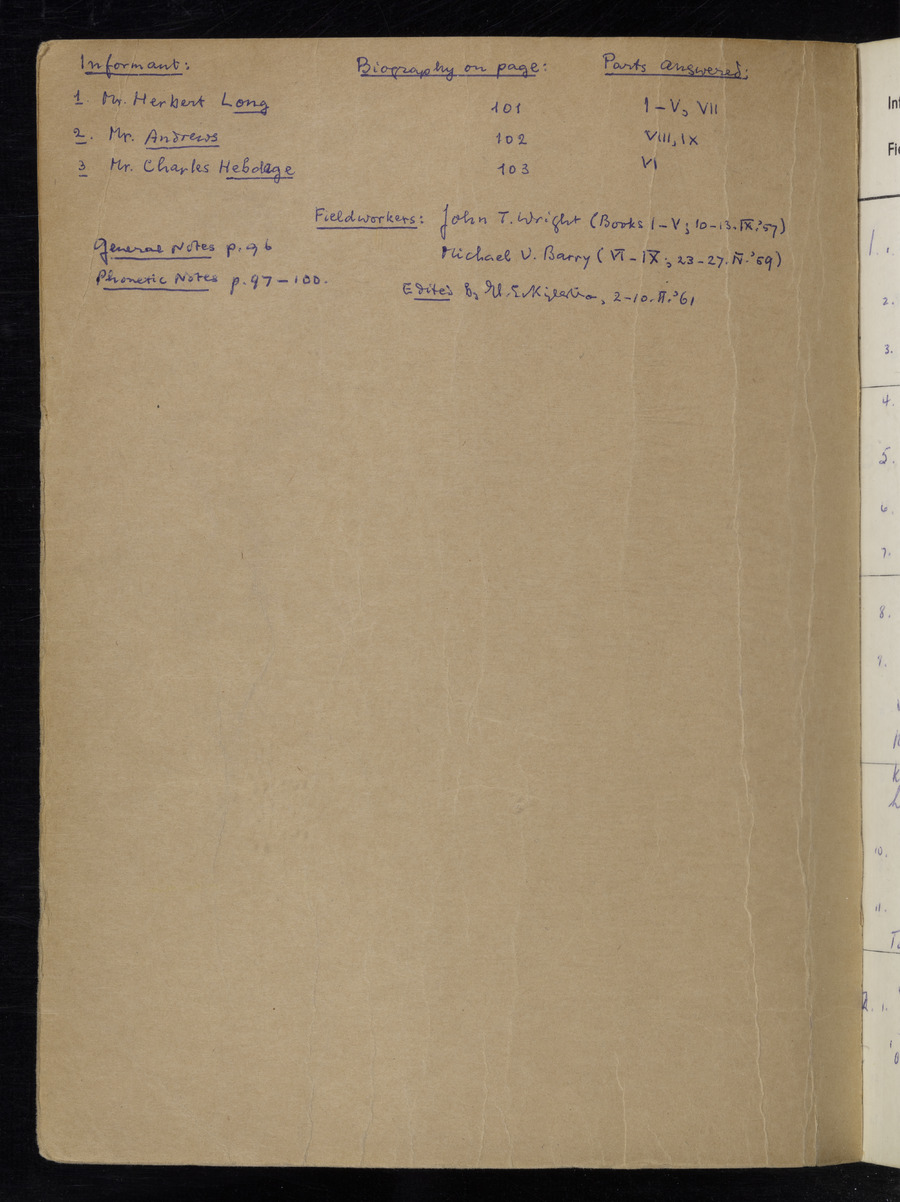 Informant: Biography on page: Parts answered:
1. Mr. Herbert Long 101 I – V, VII
2. Mr. Andrews 102 VIII, IX
3 Mr. Charles Hebdege 103 VI
Fieldworkers: John T. Wright (Books I – V; 10–13. IX.'57)
General Notes p. 96
Michael V. Barry (VI – IX; 23–27. IV.'59)
Phonetic Notes p. 97 – 100.
Edited by 2–10. II.'61
In
Fi
1.
2.
3.
4.
5.
6.
7.
8.
9.
10.
11.
2. 1.